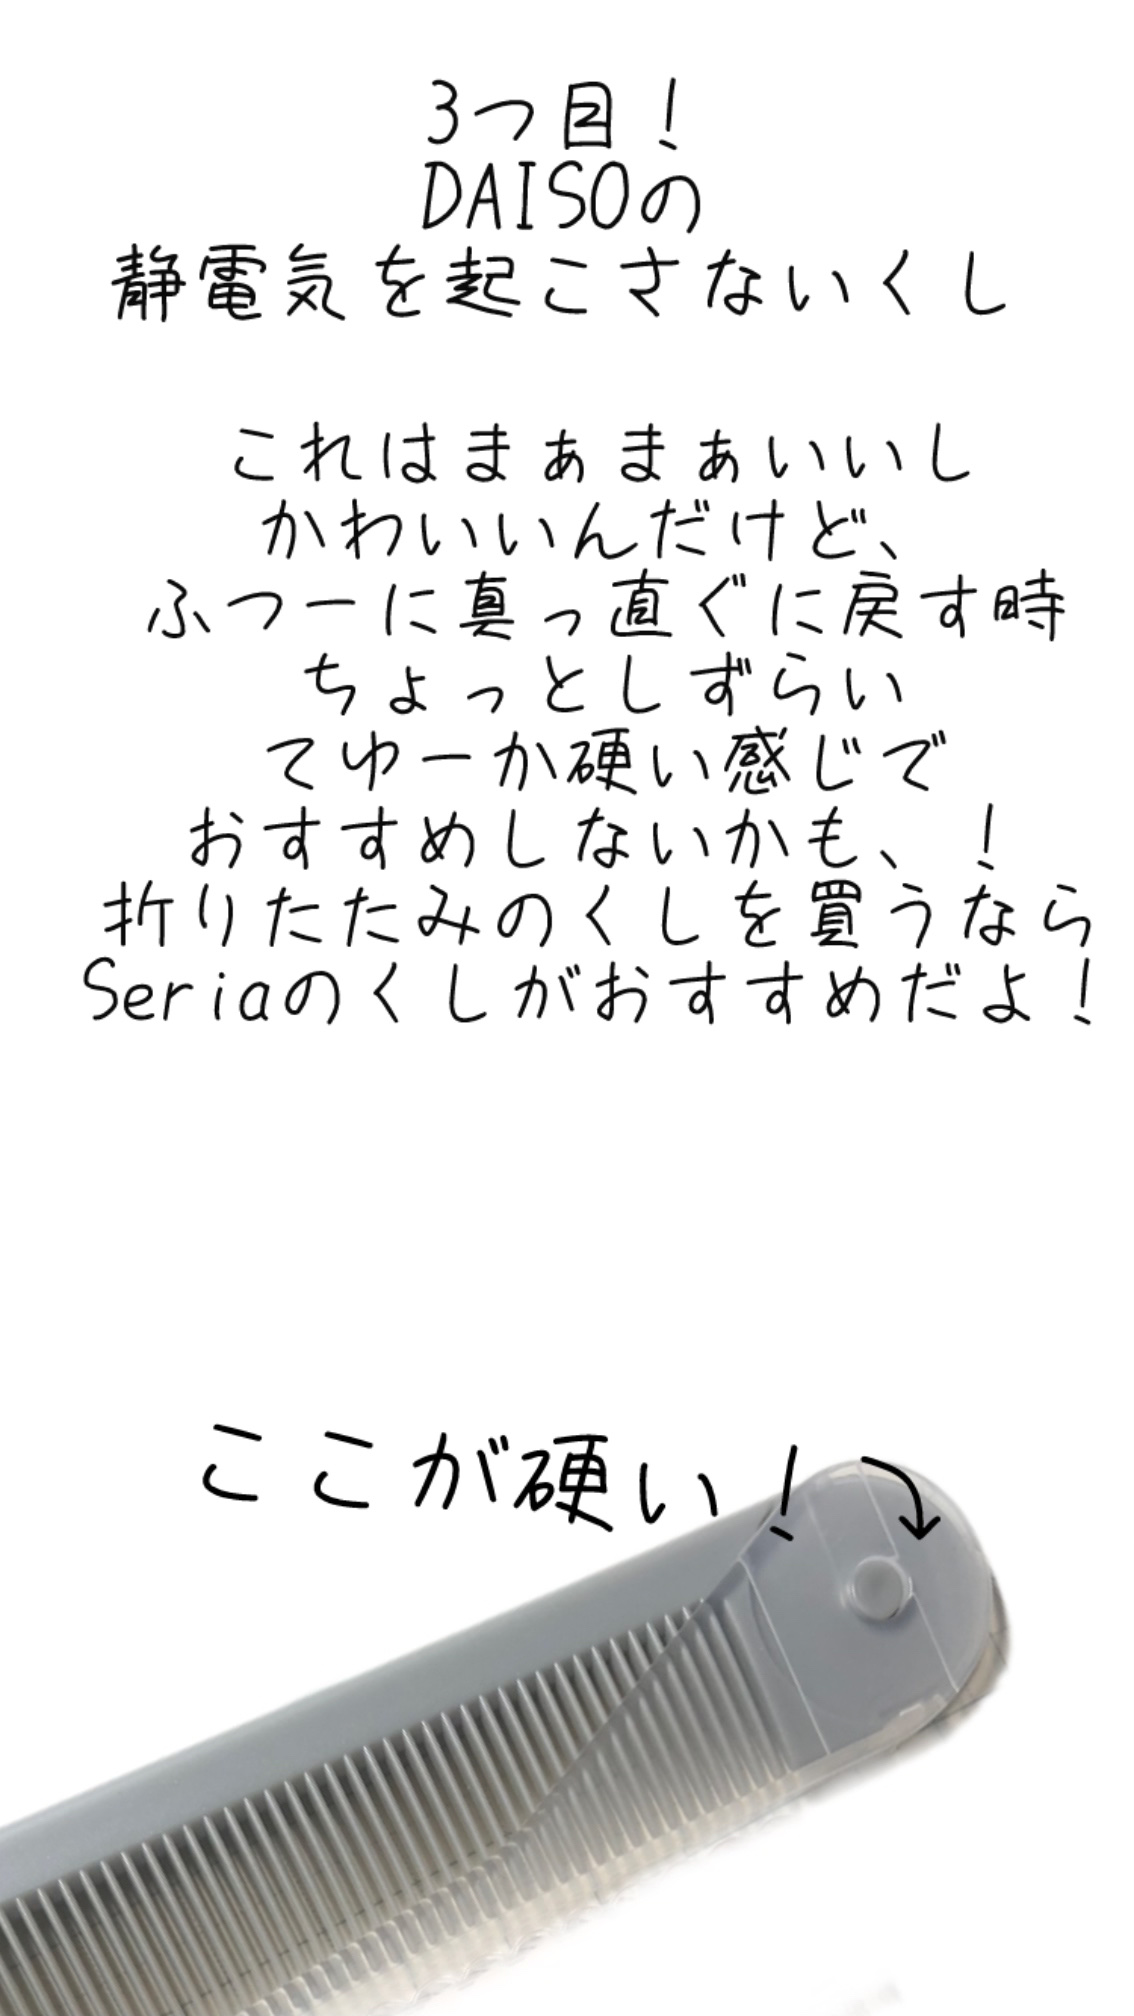 3つ目！
DAISOの
静電気を起こさないくし
これはまぁまぁいいし
かわいいんだけど、
ふつーに真っ直ぐに戻す時
ちょっとしずらい
てゆーか硬い感じで
おすすめしないかも、！
折りたたみのくしを買うなら
Seriaのくしがおすすめだよ！
ここが硬い！